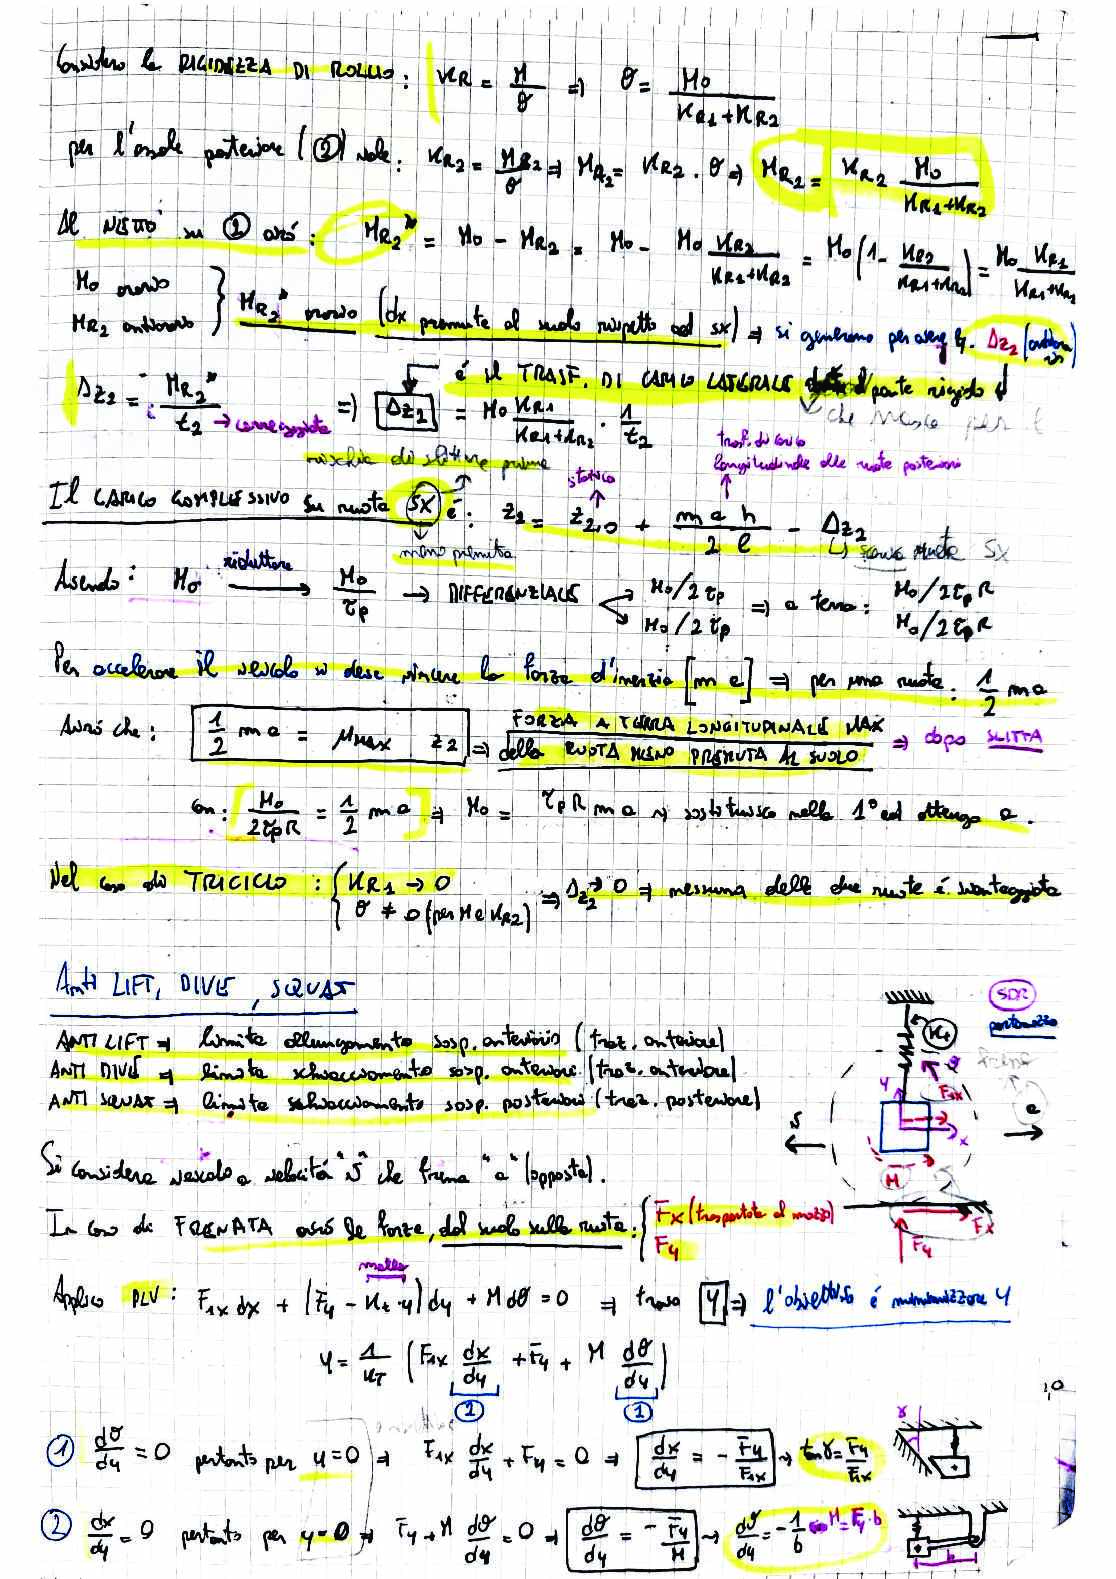 Considero la RIGIDEZZA DI ROLLIO: KR = M/θ ⇒ θ = M0/(KR1+KR2)
per l'assale posteriore (2) vale: KR2 = MR2/θ ⇒ MR2 = KR2 · θ ⇒ MR2 = KR2 M0/(KR1+KR2)
Al NETTO su 2 avrò: MR2* = M0 - MR2 = M0 - M0 KR2/(KR1+KR2) = M0 (1 - KR2/(KR1+KR2)) = M0 KR1/(KR1+KR2)
M0 orario
MR2 antiorario } MR2* orario (dx premute al suolo rispetto ad sx) ⇒ si generano per avere Δz2
Δz2 = MR2*/t2 → carreggiata ⇒ Δz2 = M0 KR1/(KR1+KR2) · 1/t2
é il TRASF. DI CARICO LATERALE
che nasce per
rischia di slittare prima
statico
trasf. di carico longitudinale alle ruote posteriori
Il CARICO COMPLESSIVO su ruota SX é: z2 = z2,0 + m a h/2 l - Δz2
meno premuta
ruota SX
Avendo: M0 riduttore → M0/τp → DIFFERENZIALE M0/2τp M0/2τp ⇒ a terra: M0/2τpR M0/2τpR
Per accelerare il veicolo si deve vincere la forza d'inerzia [m a] ⇒ per una ruota: 1/2 m a
Avrò che: 1/2 m a = μMAX z2 ⇒ FORZA A TERRA LONGITUDINALE MAX della RUOTA MENO PREMUTA AL SUOLO ⇒ dopo SLITTA
con: [M0/2τpR = 1/2 m a] ⇒ M0 = τp R m a → sostituisco nella 1° ed ottengo a.
Nel caso di TRICICLO: { KR1 → 0
θ ≠ 0 (per M e KR2) ⇒ Δz2 → 0 ⇒ nessuna delle due ruote é svantaggiata
Anti LIFT, DIVE, SQUAT
SDR
posteriore
ANTI LIFT ⇒ limita allungamento sosp. anteriori (traz. anteriore)
ANTI DIVE ⇒ limita schiacciamento sosp. anteriore (traz. anteriore)
ANTI SQUAT ⇒ limita schiacciamento sosp. posteriori (traz. posteriore)
Kt
θ
y
F1x
x
v
a
M
Fx
Fy
Si considera veicolo a velocità "v" che frena "a" (opposta).
In caso di FRENATA avrò le forze, dal suolo sulla ruota: { Fx (trasportata al mozzo)
Fy
molla
Applico PLV: F1x dx + (Fy - Kt · y) dy + M dθ = 0 ⇒ trovo y ⇒ l'obiettivo é minimizzare y
y = 1/KT (F1x dx/dy + Fy + M dθ/dy)
2 1
1 dθ/dy = 0 pertanto per y = 0 ⇒ F1x dx/dy + Fy = 0 ⇒ dx/dy = - Fy/F1x → tan γ = Fy/F1x
γ
2 dx/dy = 0 pertanto per y = 0 ⇒ Fy + M dθ/dy = 0 ⇒ dθ/dy = - Fy/M → dθ/dy = - 1/b con M = Fy · b
b